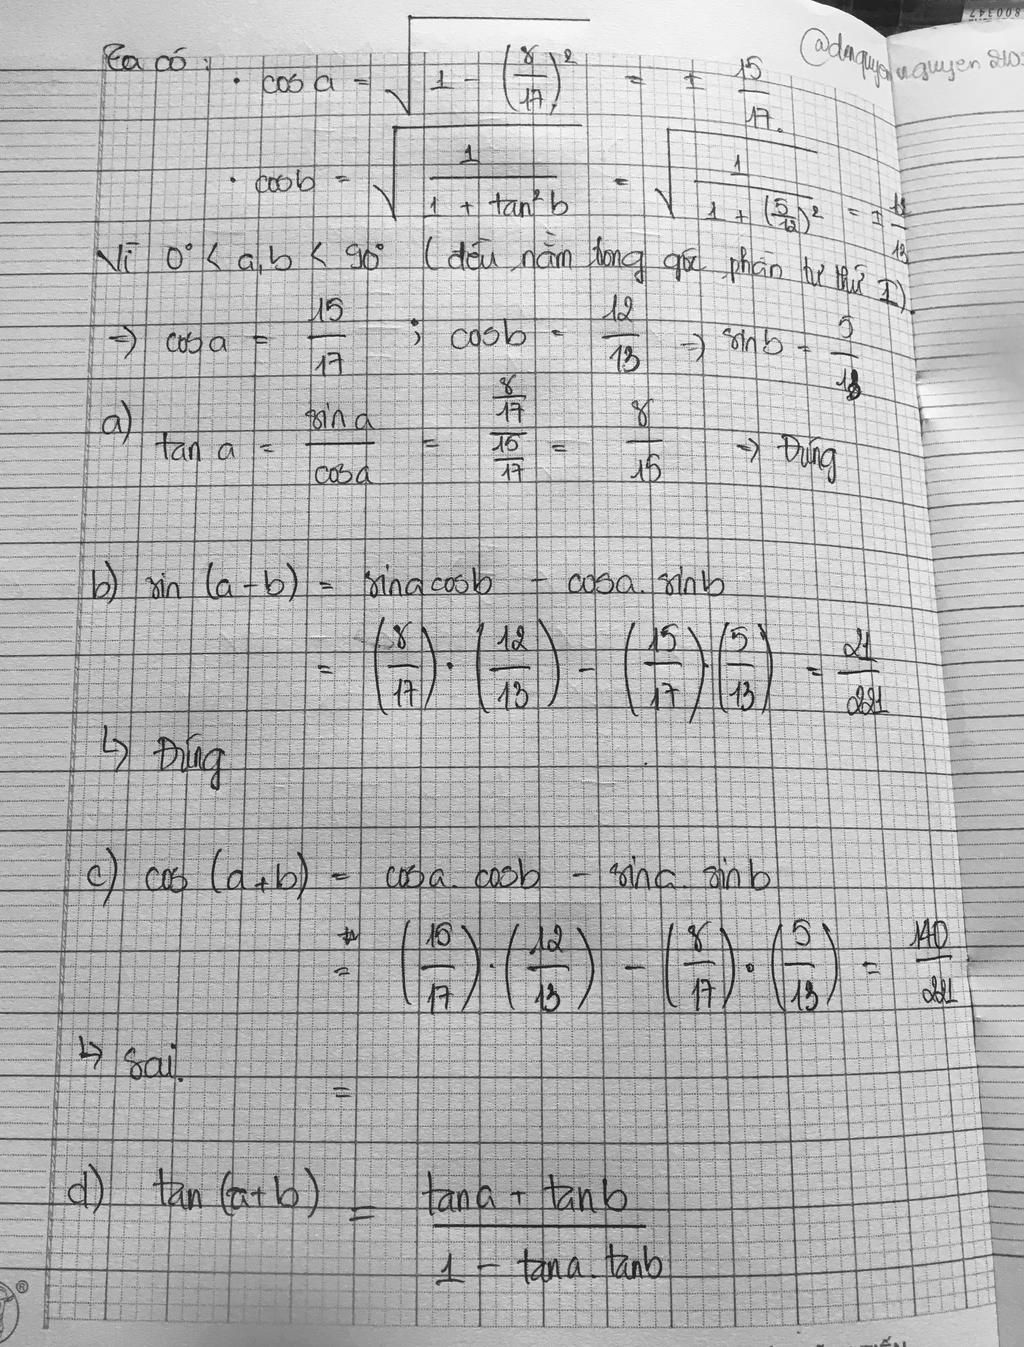 Ta có: · cos a = √(1 - (8/17)²) = ± 15/17. @dnguyen
nguyen 210
800347
· cos b = √(1/(1 + tan²b)) = √(1/(1 + (5/12)²)) = ± 12/13
Vì 0° < a,b < 90° (đều nằm trong góc phần tư thứ I).
=> cos a = 15/17 ; cos b = 12/13 => sin b = 5/13
a) tan a = sin a/cos a = (8/17)/(15/17) = 8/15 => Đúng
b) sin (a-b) = sin a cos b - cos a. sin b
= (8/17) · (12/13) - (15/17)·(5/13) = 21/221
↳ Đúng
c) cos (a+b) = cos a. cos b - sin a. sin b
= (15/17) · (12/13) - (8/17) · (5/13) = 140/221
↳ Sai.
=
d) tan (a+b) = (tan a + tan b)/(1 - tan a. tan b)
®